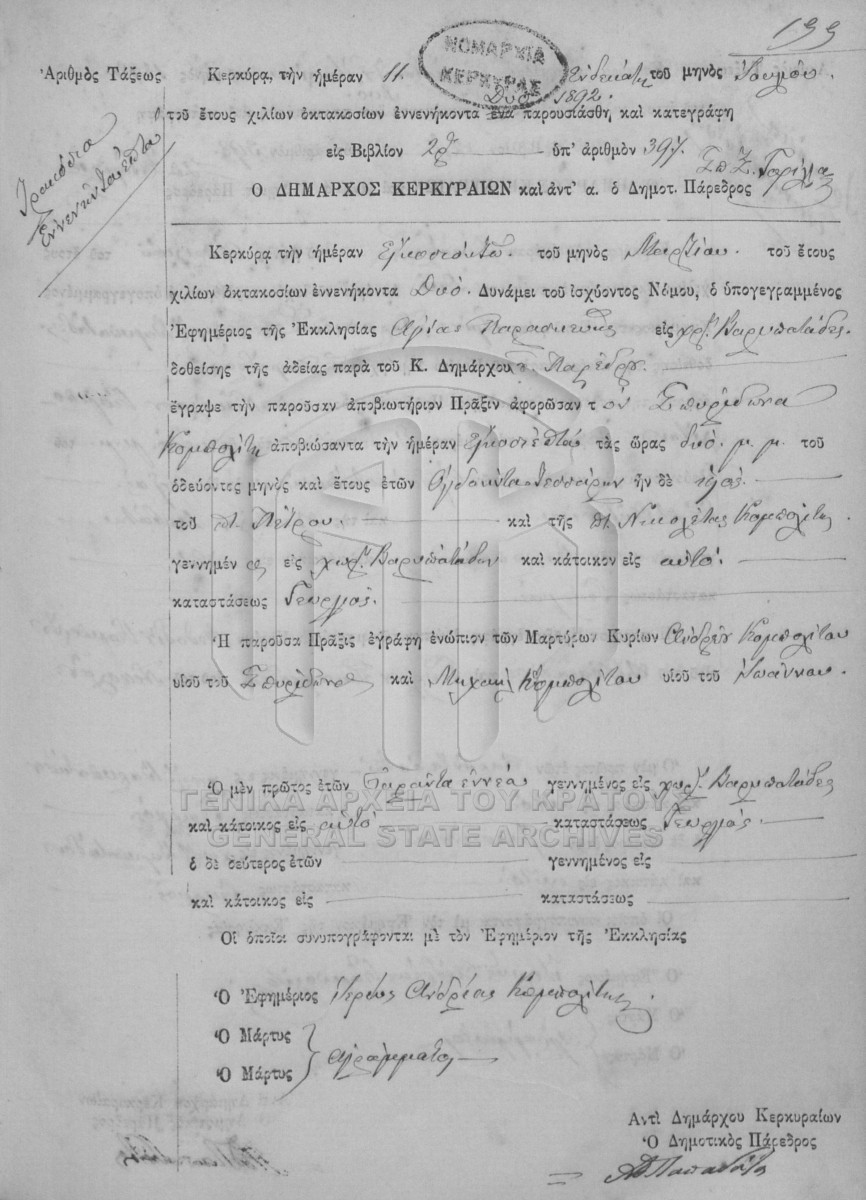 199
ΝΟΜΑΡΧΙΑ
ΚΕΡΚΥΡΑΣ
Ἀριθμὸς Τάξεως
Τριακόσια
ἐννενῆκονταἑπτὰ
Κερκύρᾳ, τὴν ἡμέραν 11 Ἑνδεκάτη τοῦ μηνὸς Ἰουλίου.
Δύο 1892.
τοῦ ἔτους χιλίων ὀκτακοσίων ἐννενήκοντα ἕνα παρουσιάσθη καὶ κατεγράφη
εἰς Βιβλίον 2ον ὑπ' ἀριθμὸν 397.
Ὁ ΔΗΜΑΡΧΟΣ ΚΕΡΚΥΡΑΙΩΝ καὶ ἀντ' α. ὁ Δημοτ. Πάρεδρος
Κερκύρᾳ τὴν ἡμέραν Εἰκοστὀκτώ. τοῦ μηνὸς Μαρτίου. τοῦ ἔτους
χιλίων ὀκτακοσίων ἐννενήκοντα Δύο. Δυνάμει τοῦ ἰσχύοντος Νόμου, ὁ ὑπογεγραμμένος
Ἐφημέριος τῆς Ἐκκλησίας Ἁγίας Παρασκευῆς εἰς χωρ. Βαρυπατάδες.
δοθείσης τῆς ἀδείας παρὰ τοῦ Κ. Δημάρχου Παρέδρου.
ἔγραψε τὴν παροῦσαν ἀποβιωτήριον Πρᾶξιν ἀφορῶσαν τ ὸν Σπυρίδωνα
Κομπολίτη ἀποβιώσαντα τὴν ἡμέραν Εἰκοστεπτά τὰς ὥρας δύο. μ. μ. τοῦ
ὁδεύοντος μηνὸς καὶ ἔτους ἐτῶν Ὀγδοῆντατεσσάρων ἦν δὲ υἱὸς.
τοῦ π. Πέτρου. καὶ τῆς π. Νικολέτας Κομπολίτη.
γεννημέν ος εἰς χωρ. Βαρυπατάδων καὶ κάτοικον εἰς αὐτό.
καταστάσεως Γεωργός.
Ἡ παροῦσα Πρᾶξις ἐγράφη ἐνώπιον τῶν Μαρτύρων Κυρίων Ἀνδρέου Κομπολίτου
υἱοῦ τοῦ Σπυρίδωνος καὶ Μιχαὴλ Κομπολίτου υἱοῦ τοῦ Ἰωάννου.
Ὁ μὲν πρῶτος ἐτῶν Σαράντα ἐννέα γεννημένος εἰς χωρ. Βαρυπατάδες
καὶ κάτοικος εἰς αὐτό καταστάσεως Γεωργός.
ὁ δὲ δεύτερος ἐτῶν γεννημένος εἰς
καὶ κάτοικος εἰς καταστάσεως
Οἱ ὁποῖοι συνυπογράφονται μὲ τὸν Ἐφημέριον τῆς Ἐκκλησίας
Ὁ Ἐφημέριος Ἱερεὺς Ἀνδρέας Κομπολίτης.
Ὁ Μάρτυς
Ὁ Μάρτυς
Ἀγράμματοι
Ἀντὶ Δημάρχου Κερκυραίων
Ὁ Δημοτικὸς Πάρεδρος
ΓΕΝΙΚΑ ΑΡΧΕΙΑ ΤΟΥ ΚΡΑΤΟΥΣ
GENERAL STATE ARCHIVES